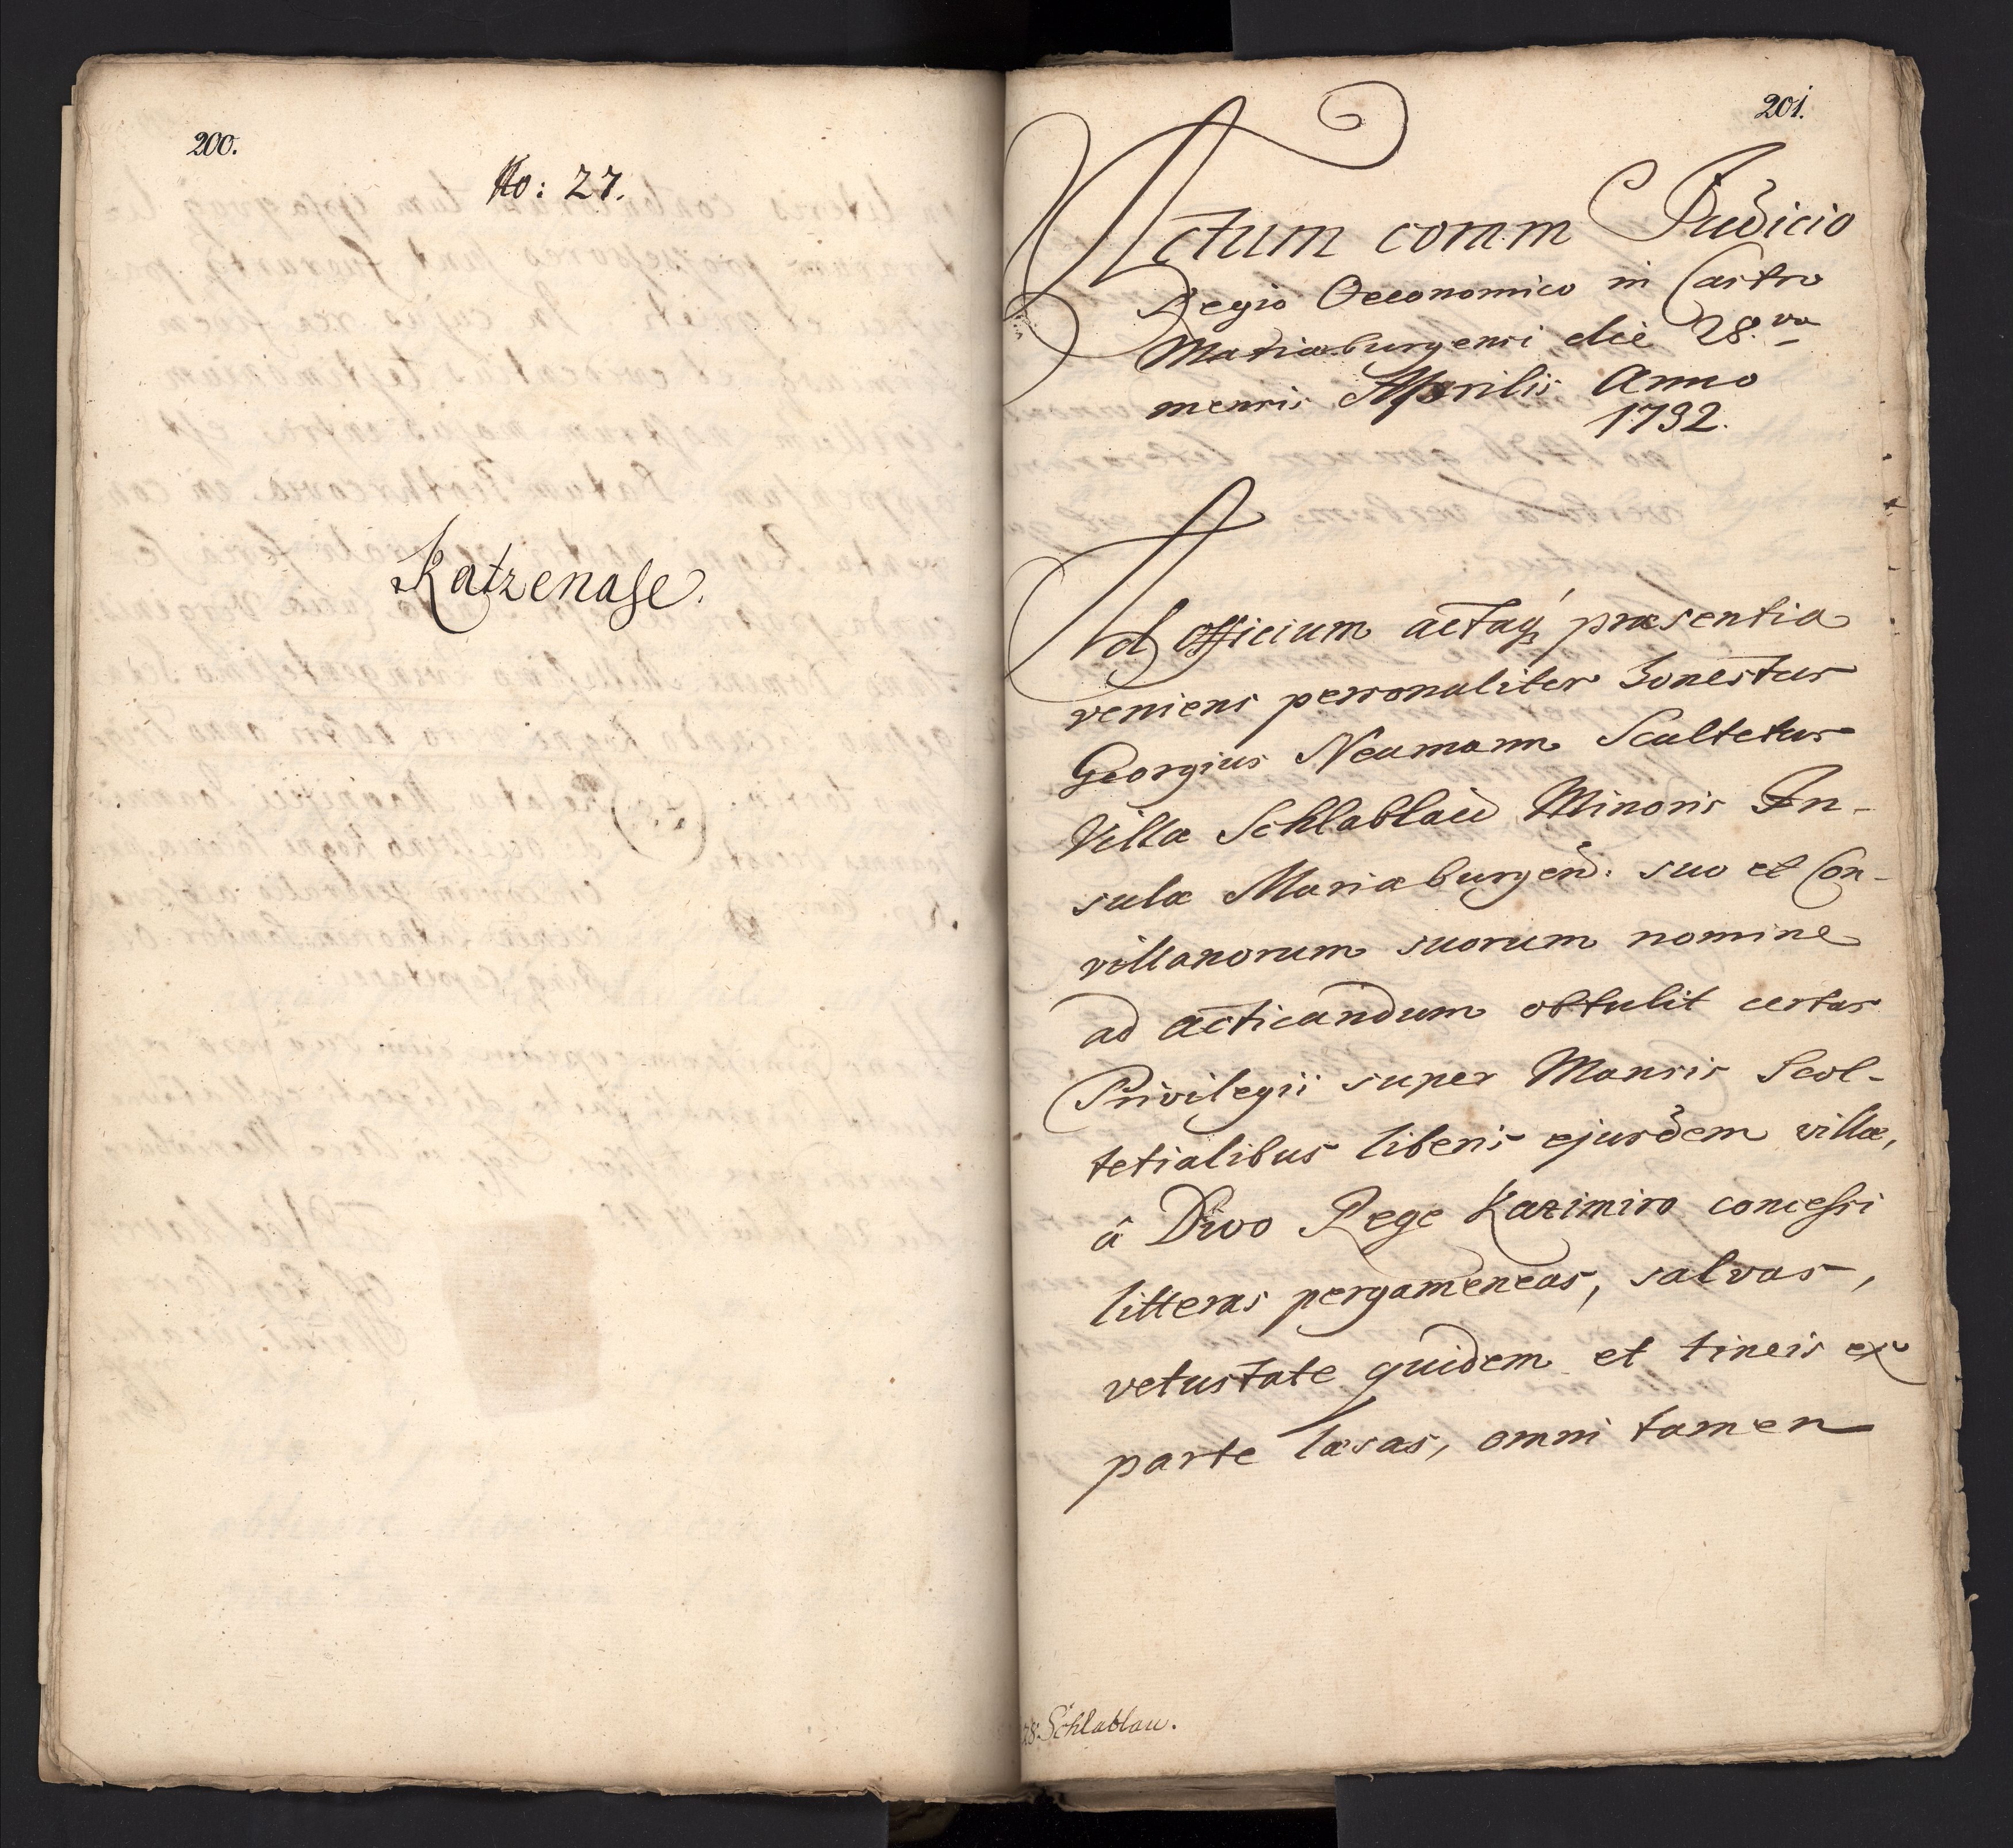 200.
No: 27.
Katzenase.
201.
Actum coram Judicio
Regio Oeconomico in Castro
Mariæburgensi die 28.va
mensis Aprilis Anno
1732.
Ad Officium actaq́ præsentia
veniens personaliter Honestus
Georgius Neumann Scultetus
Villæ Schlablau Minoris In-
sulæ Mariæburgen̄: suo et Con-
villanorum suorum nomine
ad acticandum obtulit certas
Privilegii super Mansis Scol-
tetialibus liberis ejusdem villæ,
â Divo Rege Kazimiro concessi
litteras pergameneas, salvas,
vetustate quidem et tineis ex
parte læsas, omni tamen
28. Schlablau.